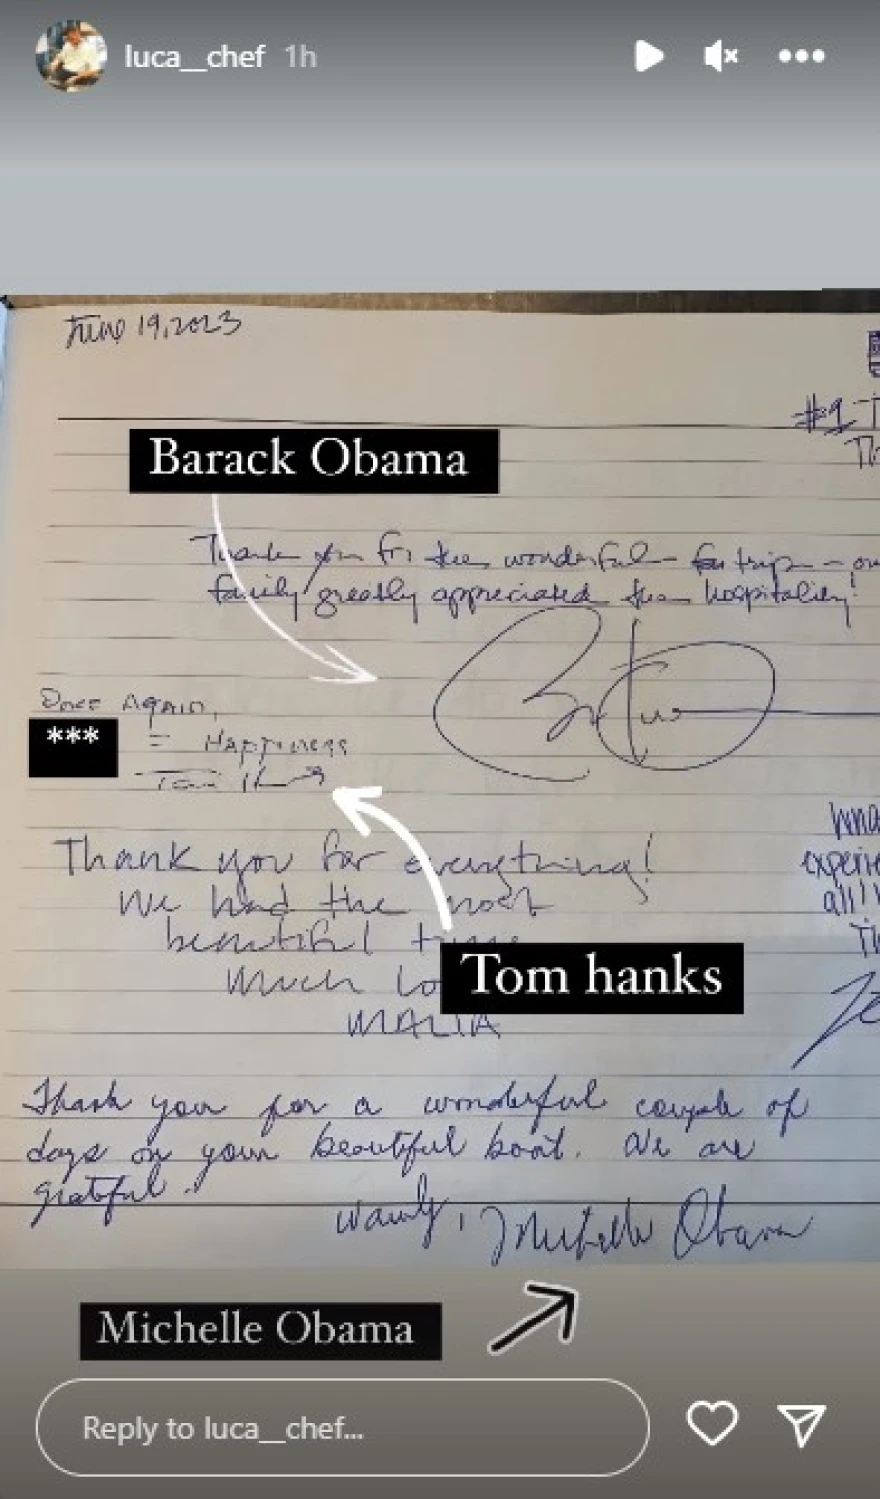 luca__chef 1h
June 19, 2023
#1
Barack Obama
Thank you for the wonderful trip — our
family greatly appreciated the hospitality!
Once Again,
*** = Happiness
Thank you for everything!
We had the most
beautiful time
Much
Tom hanks
MALIA
Thank you for a wonderful couple of
days on your beautiful boat. We are
grateful.
Warmly, Michelle Obama
Michelle Obama
Reply to luca__chef...